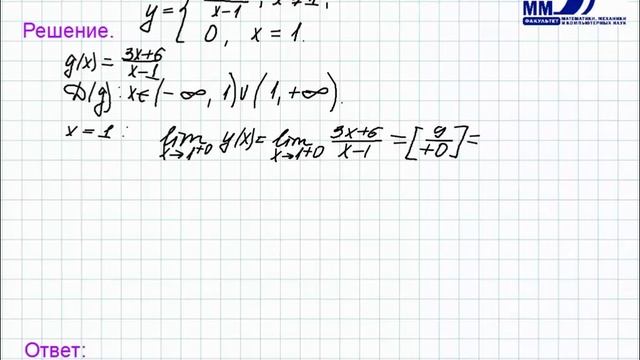 y = { x-1, x ≠ 1,
0, x = 1.
ММ
ФАКУЛЬТЕТ МАТЕМАТИКИ, МЕХАНИКИ И КОМПЬЮТЕРНЫХ НАУК
Решение.
g(x) = \frac{3x+6}{x-1}
D(g): x∈(-∞, 1)∪(1, +∞).
x = 1: \lim_{x→1+0} y(x) = \lim_{x→1+0} \frac{3x+6}{x-1} = [\frac{9}{+0}] =
Ответ: